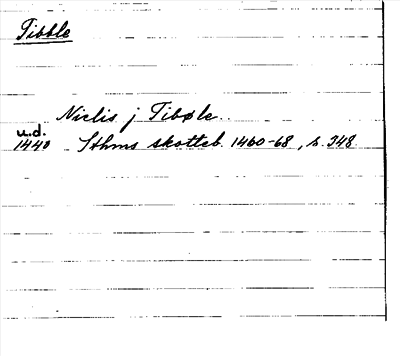 Tibble
Niclis j Tibøle.
u.d.
1440 Sthms skotteb. 1460-68, s. 348.